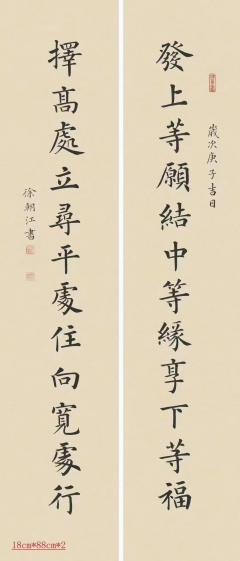 發上等願結中等緣享下等福
歲次庚子吉日
擇髙處立尋平處住向寬處行
徐朝江書
18cm*88cm*2